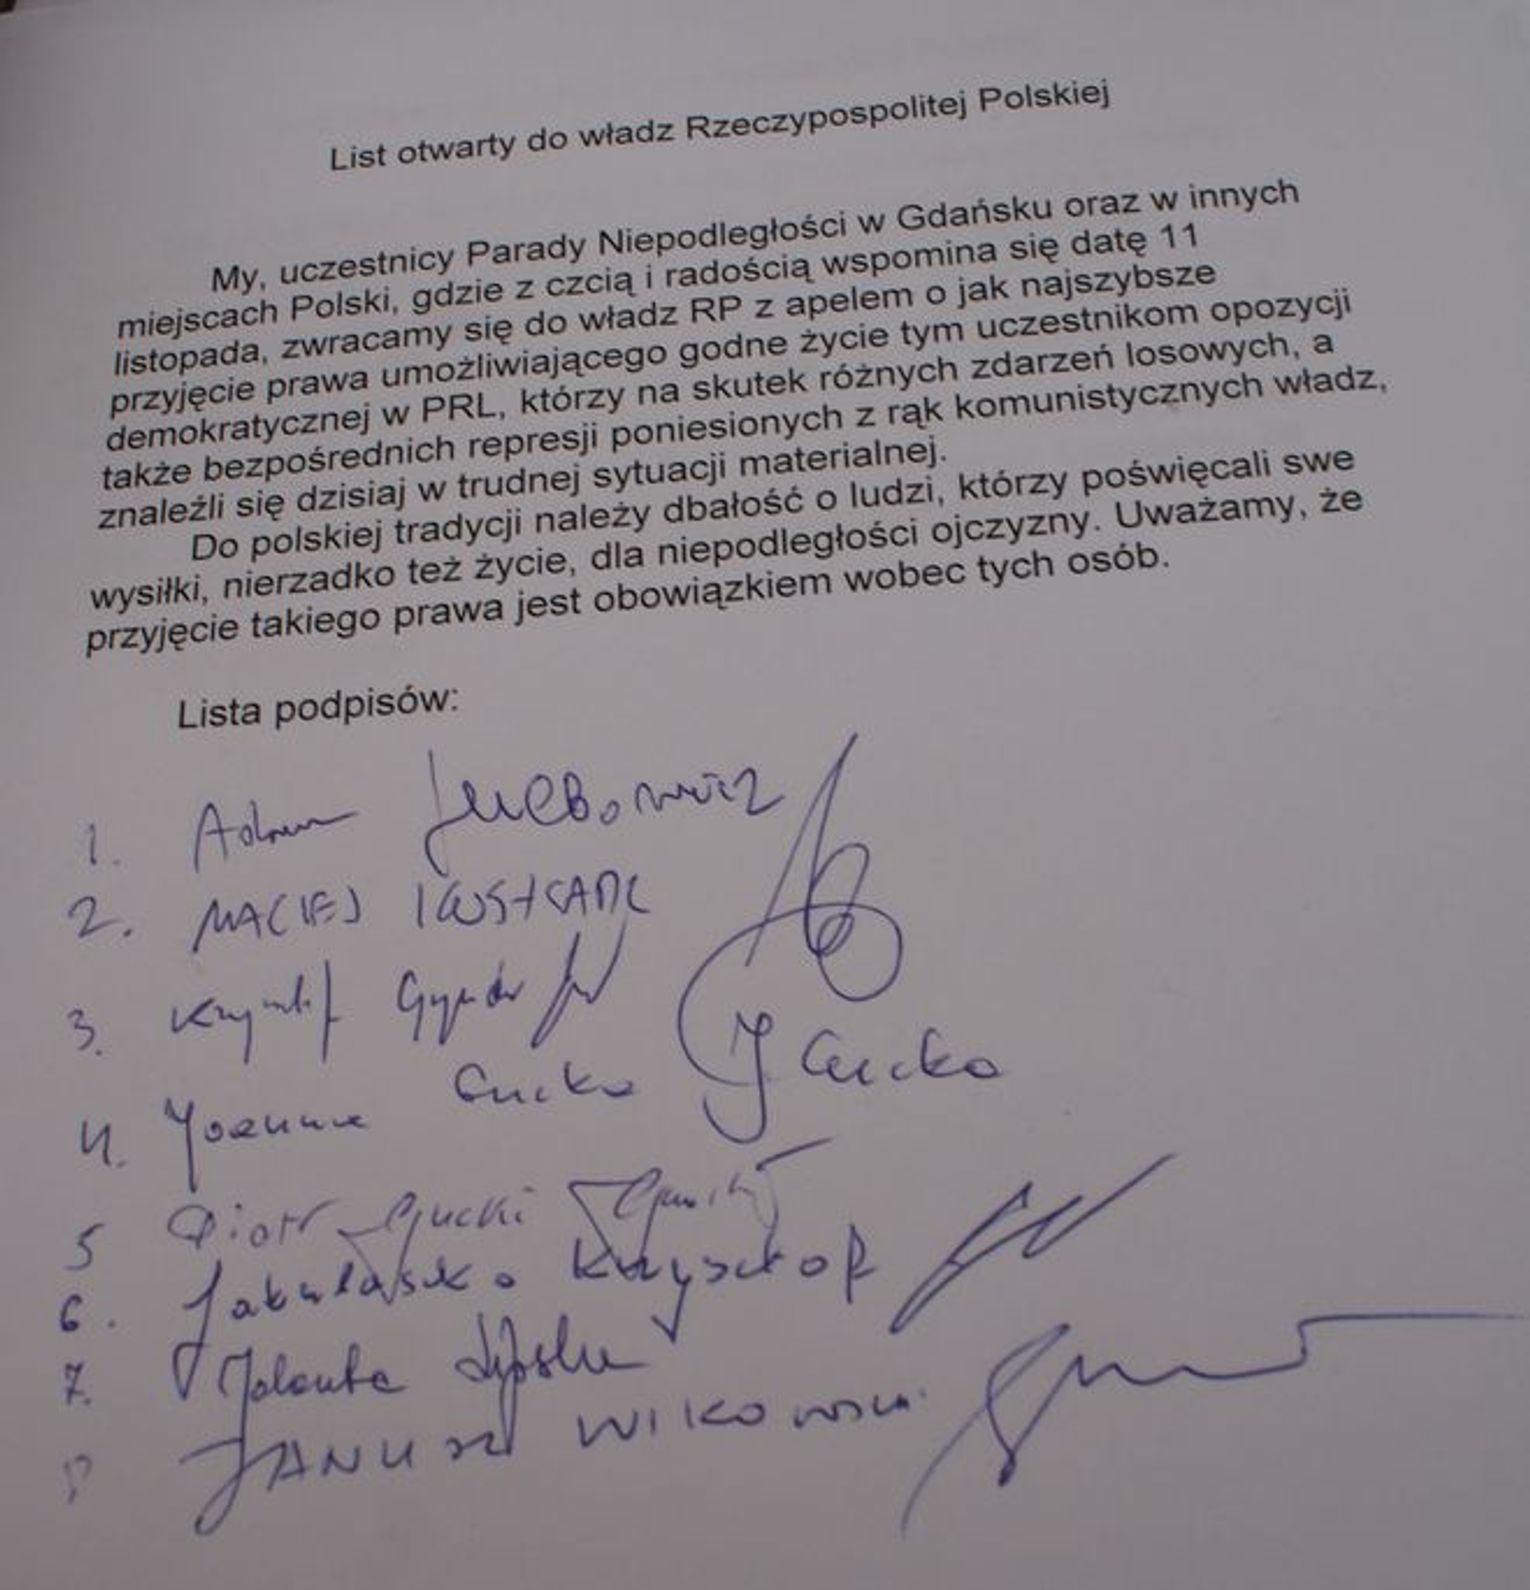 List otwarty do władz Rzeczypospolitej Polskiej
My, uczestnicy Parady Niepodległości w Gdańsku oraz w innych
miejscach Polski, gdzie z czcią i radością wspomina się datę 11
listopada, zwracamy się do władz RP z apelem o jak najszybsze
przyjęcie prawa umożliwiającego godne życie tym uczestnikom opozycji
demokratycznej w PRL, którzy na skutek różnych zdarzeń losowych, a
także bezpośrednich represji poniesionych z rąk komunistycznych władz,
znaleźli się dzisiaj w trudnej sytuacji materialnej.
Do polskiej tradycji należy dbałość o ludzi, którzy poświęcali swe
wysiłki, nierzadko też życie, dla niepodległości ojczyzny. Uważamy, że
przyjęcie takiego prawa jest obowiązkiem wobec tych osób.
Lista podpisów:
1. Adam
2. MACIEJ
3. Krzysztof
4. Joanna Gucka J Gucka
5 Piotr Gucki
6. Krzysztof
7. Jolanta
8 JANUSZ WIKOWSKI